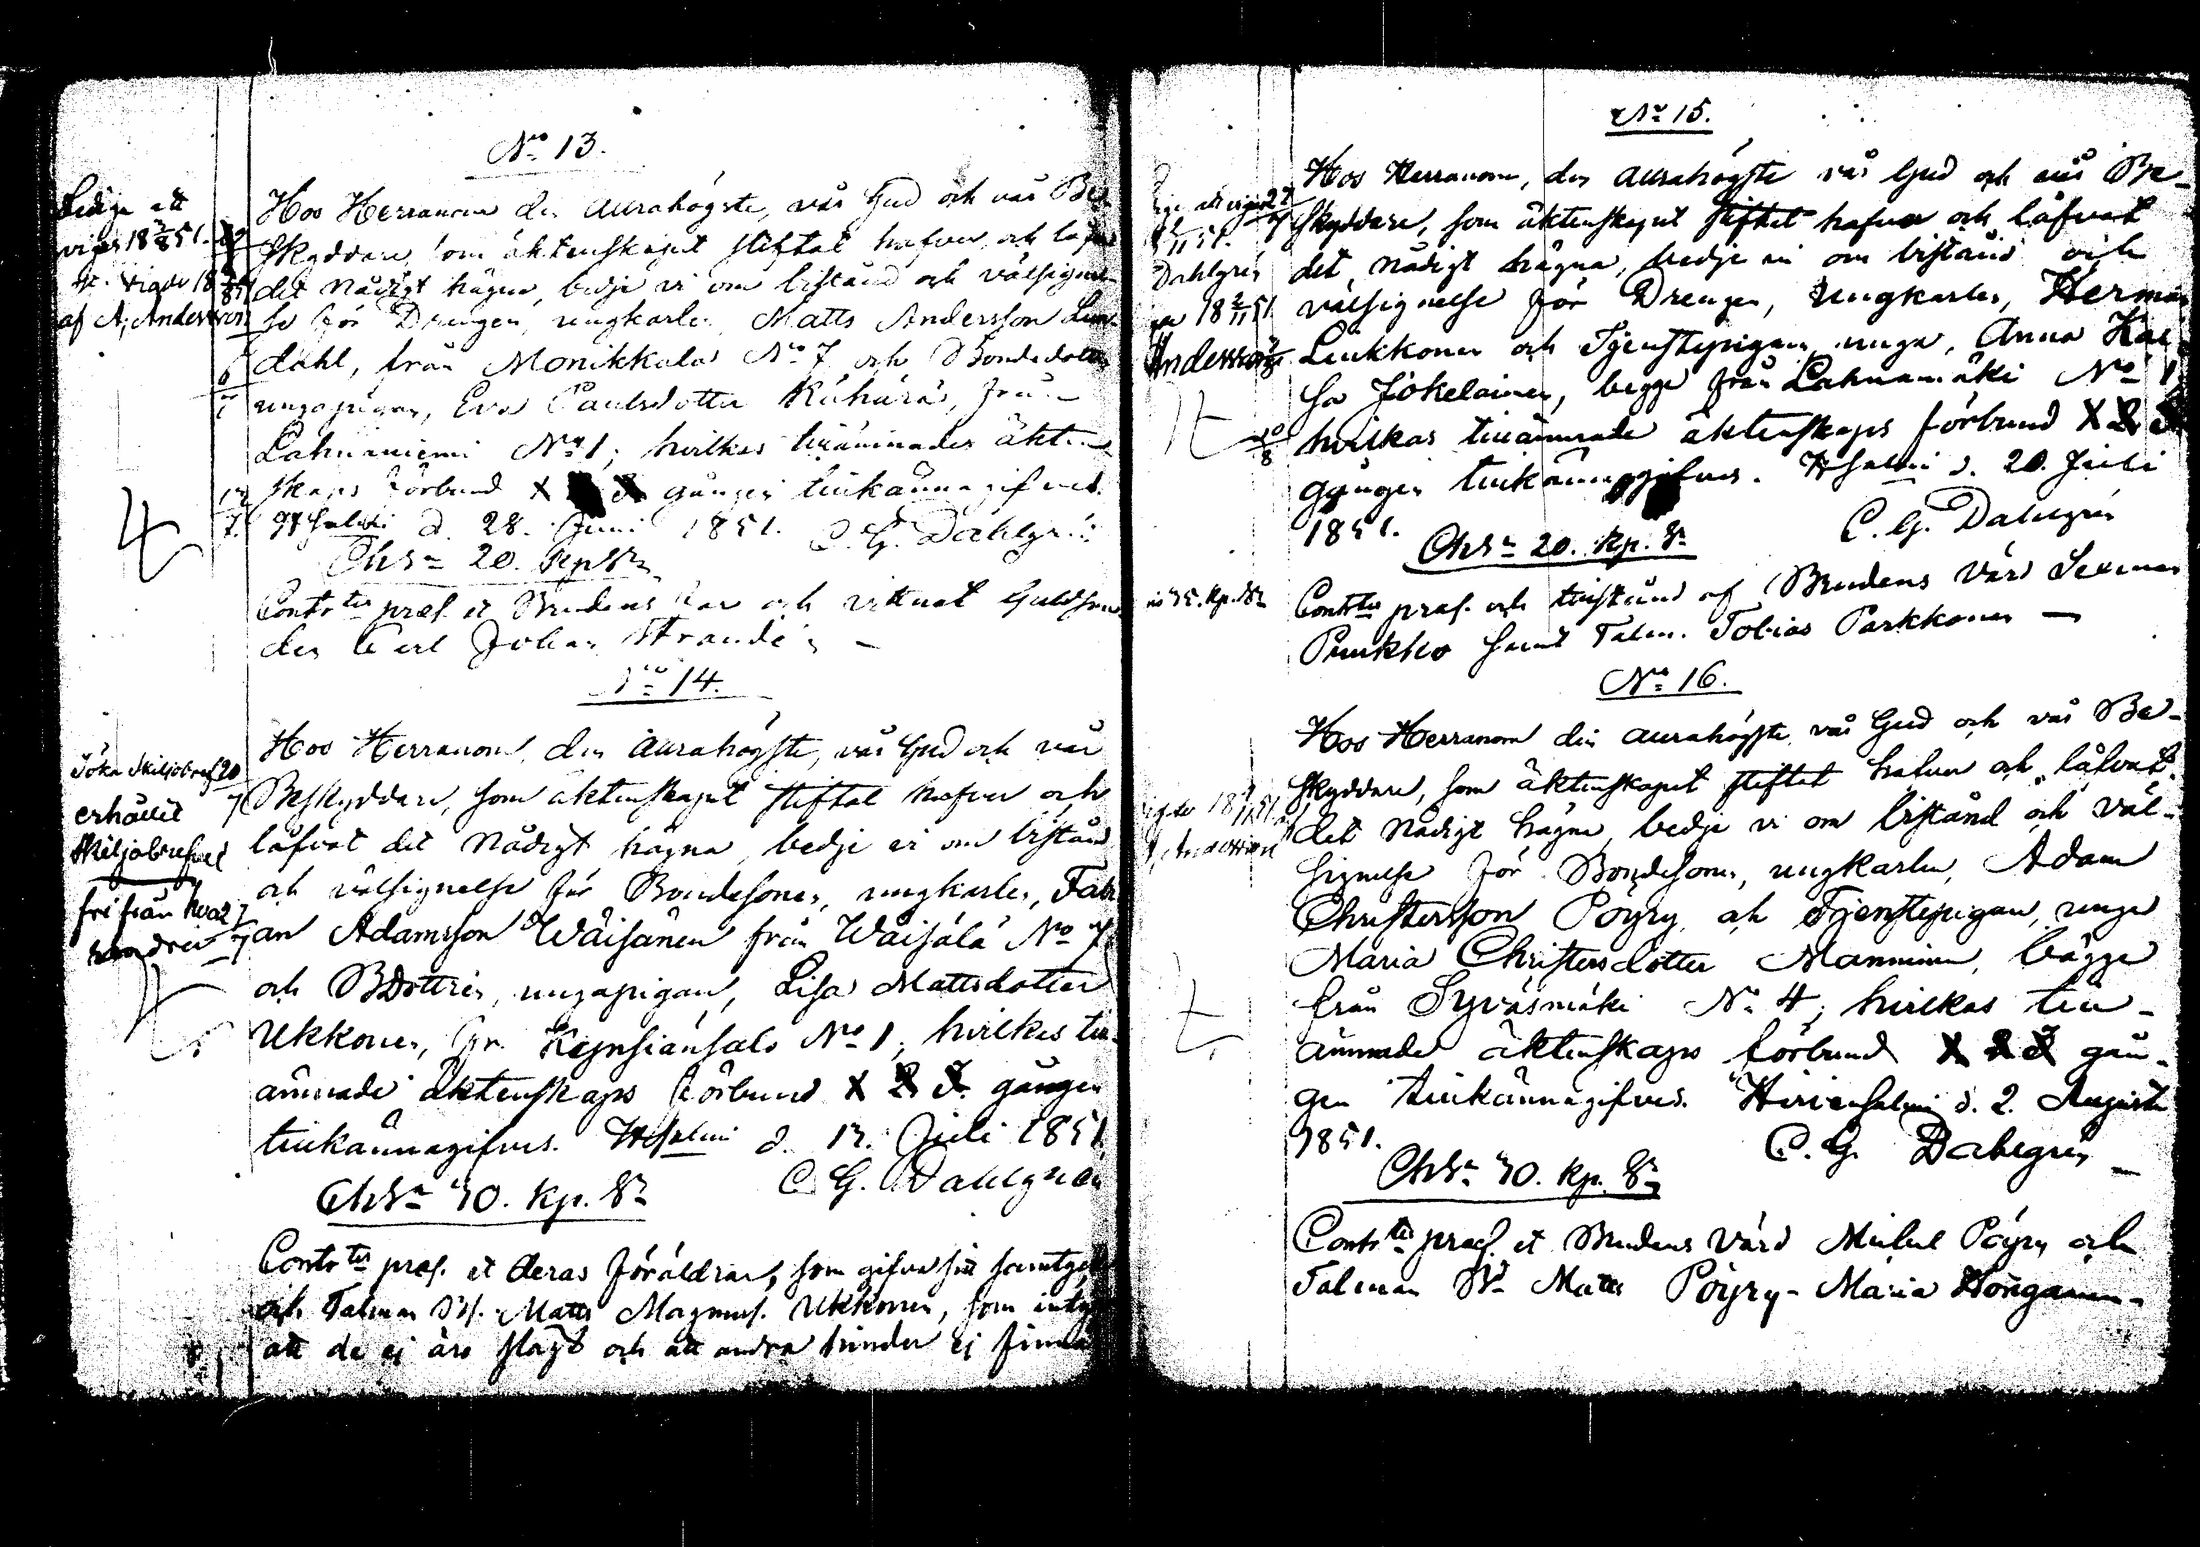 No 13.
Ledige att
viges 18 2/8 51.
af A, Andersson
Hos Herranom den aurahögste, vår Gud och vår Be-
skyddare, som äktenskapet stiftat hafver och låfvat
det nådigt hägna, bedje vi om bistånd och välsignel-
se för Drengen, ungkarlen Matts Andersson Lun-
dahl, från Monikkala No 7 och Bondedottren
ungapigan, Eva Paulsdotter Rähärä, från
Lahnaniemi No 1; hvilkas tillämnade äkten-
skaps förbund X gången tillkännagifves.
d. 28. Juni 1851. C. G. Dahlgrén
20. Kp. Sr
Contrter præs. et Brudens Far och vittnet
den Carl Johan Strandén –
No 14.
20/7
erhållit
Skiljobrefvet
fri från hvar
andra 27/7
Hos Herranom, den aurahögste, vår Gud och vår
Beskyddare, som äktenskapet stiftat hafver och
låfvat det nådigt hägna, bedje vi om bistånd
och välsignelse för Bondesonen, ungkarlen, Fabi-
an Adamsson Wäisänen från Wäisälä No 7
och BDottren, ungapigan, Lisa Mattsdotter
Ukkonen, fr. No 1; hvilkas till-
ämnade äktenskaps förbund X 2 3. gången
tillkännagifves. d. 13. Juli 1851.
C. G. Dahlgrén
30. Kp. Sr
Contrter præs. et deras föräldrar, som gifva sitt samtycke
och Talman Matts Magnuss. Ukkonen, som intyga
att de ej äro slägt och att andra hinder ej finnas
No 15.
27/7
Dahlgrén
18 2/11 51
Andersson
10/8
Hos Herranom, den aurahögste vår Gud och vår Be-
skyddare, som äktenskapet stiftat hafver och låfvat
det nådigt hägna, bedje vi om bistånd och
välsignelse för Drengen, Ungkarlen, Herman
Leukkonen och Tjenstepigan, unga, Anna Kai-
sa Jokelainen, begge från Lahnamäki No 1,
hvilkas tillämnade äktenskaps förbund X 2 3
gången tillkännagifves. d. 20. Juli
1851. C. G. Dahlgrén
20. Kp. Sr
35. Kp. Sr
Contrter præs. och tillstånd af Brudens Vård
samt Talm. Tobias Parkkonen –
No 16.
A, Andersson
Hos Herranom den aurahögste, vår Gud och vår Be-
skyddare, som äktenskapet stiftat hafver och låfvat
det nådigt hägna, bedje vi om bistånd och väl-
signelse för Bondesonen, ungkarlen, Adam
Christersson Pöyry, och Tjenstepigan, unga
Maria Christersdotter Manninen, bägge
från Syväsmäki No 4; hvilkas till-
ämnade äktenskaps förbund X 2 3 gån-
gen tillkännagifves. d. 2. Augusti
1851. C. G. Dahlgrén
30. Kp. Sr
Contrter præs. et Brudens Vård Mickel Pöyry och
Talman Matts Pöyry – Maria